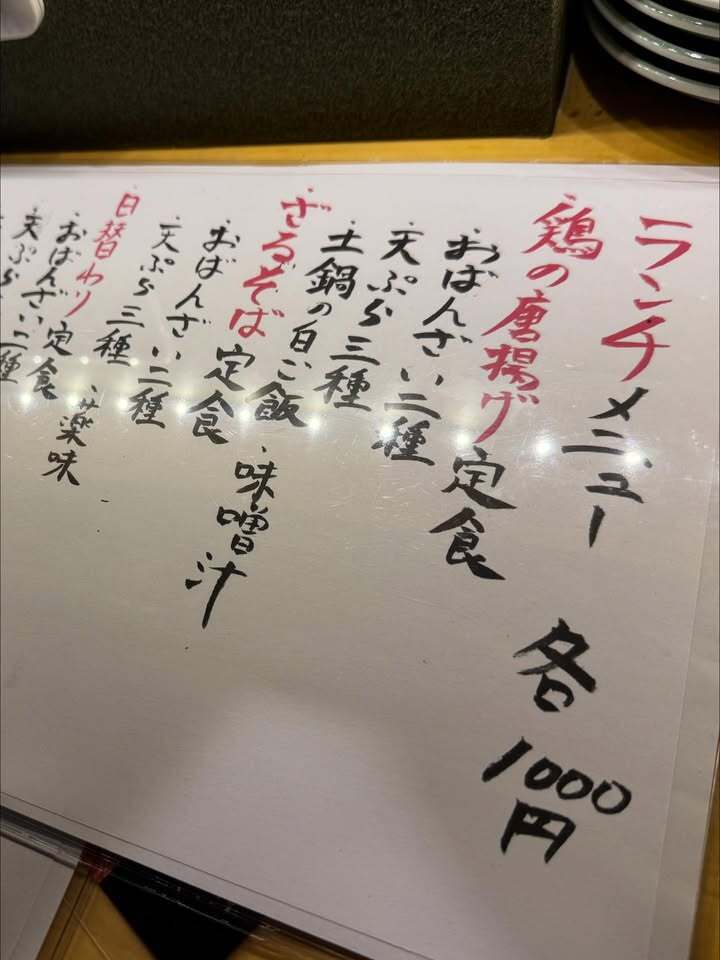 ランチメニュー 各1000円
・鶏の唐揚げ定食
・おばんざい二種
・天ぷら三種
・土鍋の白ご飯・味噌汁
・ざるそば定食
・おばんざい二種
・天ぷら三種・薬味
・日替わり定食
・おばんざい二種
・天ぷら三種